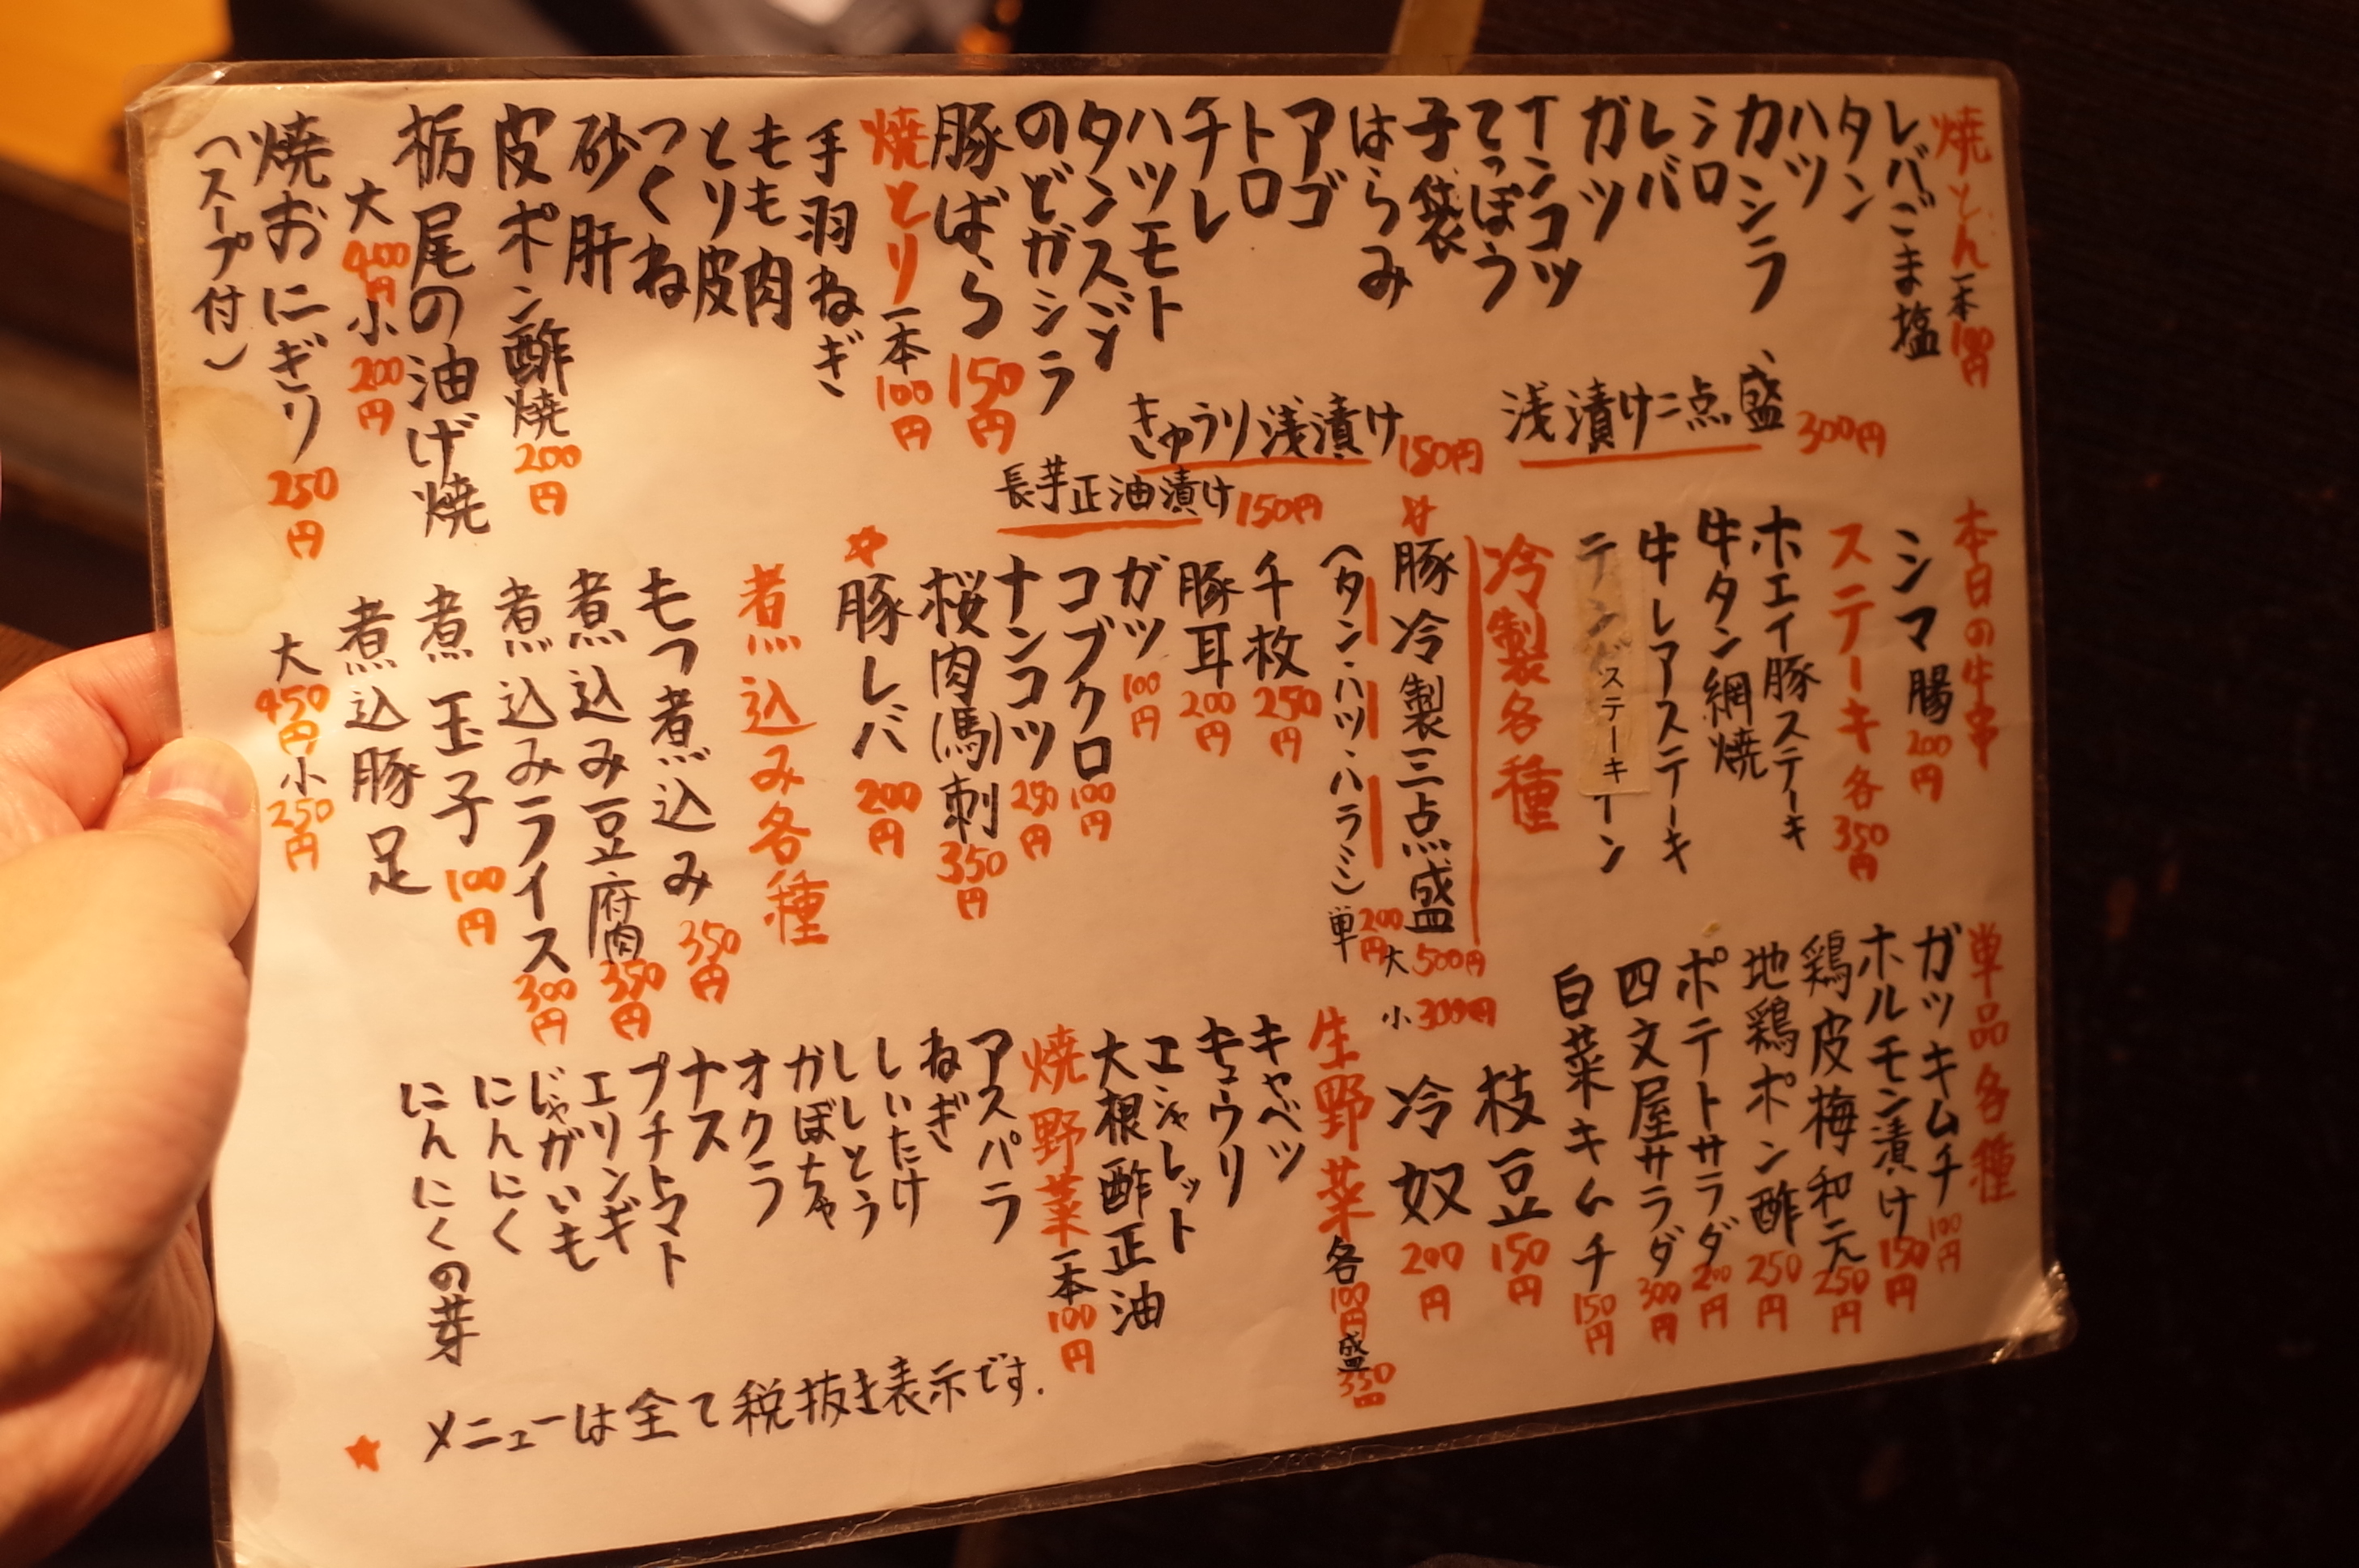 焼とん 一本 100円
レバごま塩
タン
ハツ
カシラ
シロ
レバ
ガツ
ナンコツ
てっぽう
子袋
はらみ
アゴ
トロ
チレ
ハツモト
タンスジ
のどガシラ
豚ばら 150円
焼とり 一本 100円
手羽ねぎ
もも肉
とり皮
つくね
砂肝
皮ポン酢焼 200円
栃尾の油げ焼
大 400円 小 200円
焼おにぎり 250円
(スープ付)
浅漬け二点盛 300円
きゅうり浅漬け 150円
長芋正油漬け 150円
本日の牛串
シマ腸 200円
ステーキ 各350円
ホエイ豚ステーキ
牛タン網焼
牛レアステーキ
ステーキ
冷製各種
☆豚冷製三点盛 大 500円 小 300円
(タン・ハツ・ハラミ) 単 200円
千枚 250円
豚耳 200円
ガツ 100円
コブクロ 100円
ナンコツ 250円
桜肉(馬)刺 350円
☆豚レバ 200円
煮込み各種
もつ煮込み 350円
煮込み豆腐 350円
煮込みライス 300円
煮玉子 100円
煮込豚足
大 450円 小 250円
単品各種
ガツキムチ 100円
ホルモン漬け 150円
鶏皮梅和え 250円
地鶏ポン酢 250円
ポテトサラダ 200円
四文屋サラダ 300円
白菜キムチ 150円
枝豆 150円
冷奴 200円
生野菜 各100円 盛350円
キャベツ
キュウリ
エシャレット
大根酢正油
焼野菜 一本 100円
アスパラ
ねぎ
しいたけ
ししとう
かぼちゃ
オクラ
ナス
プチトマト
エリンギ
じゃがいも
にんにく
にんにくの芽
★ メニューは全て税抜き表示です.